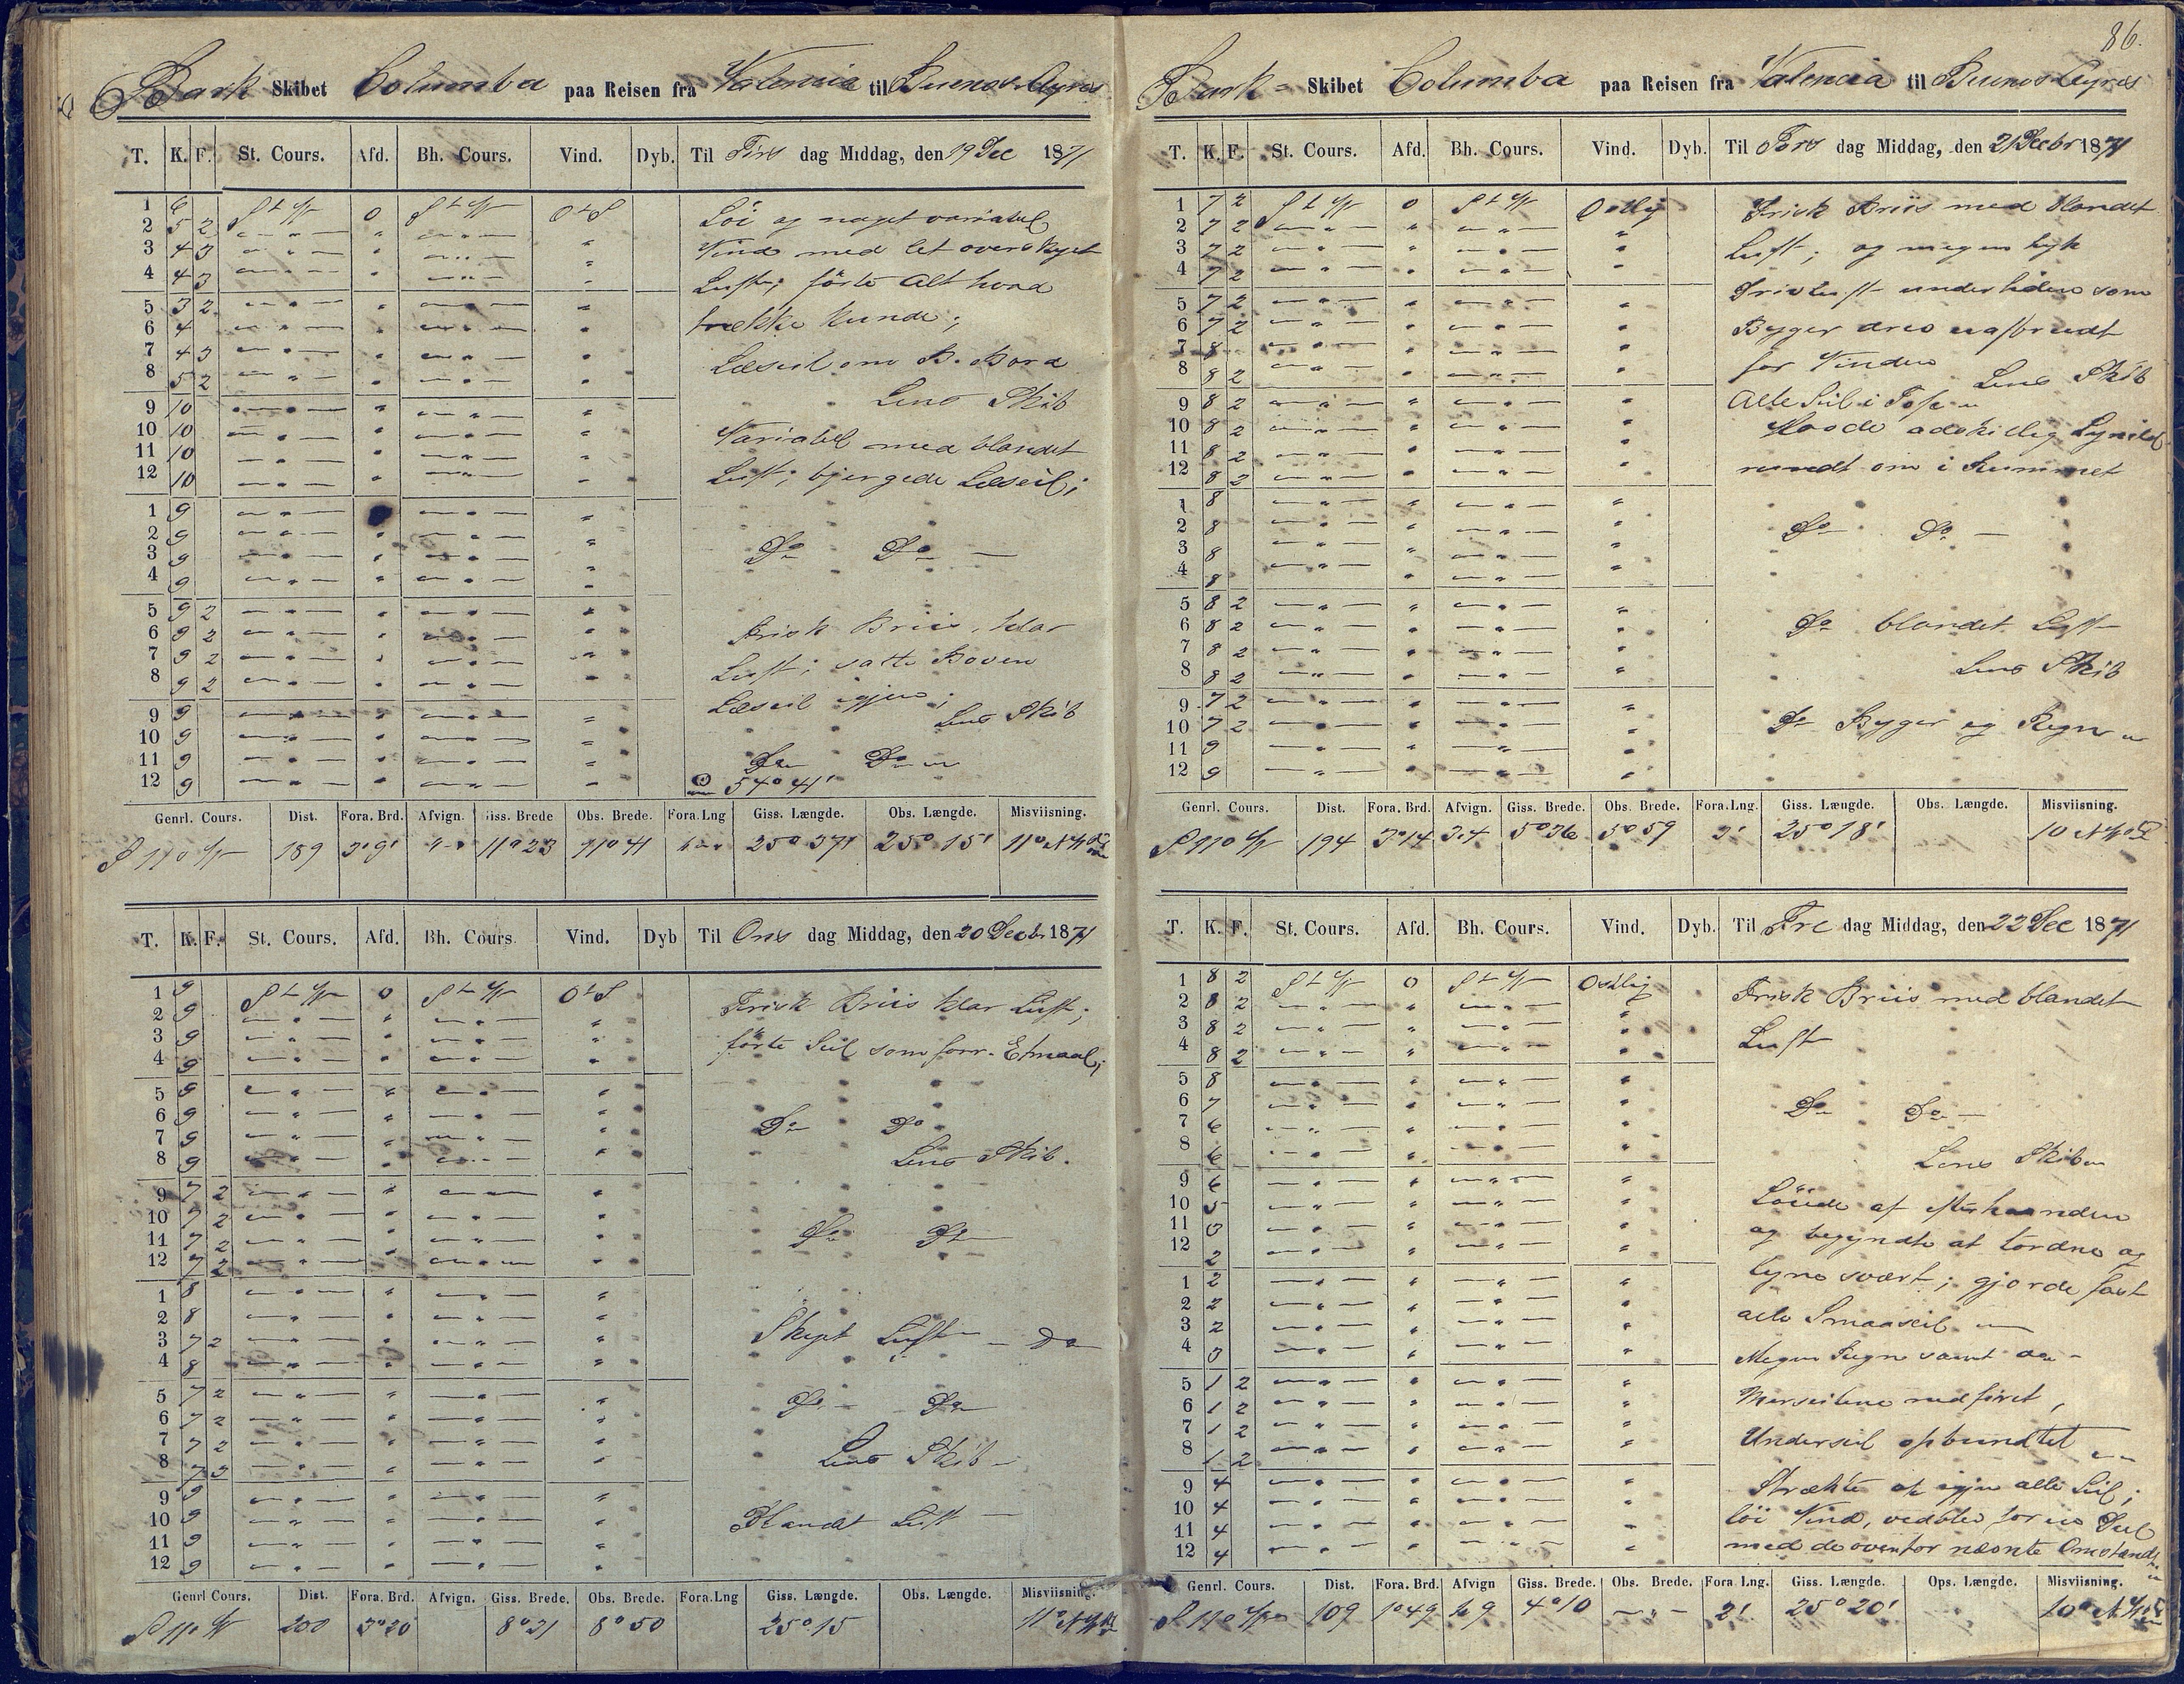 Bark Skibet Columba paa Reisen fra Valencia til Buenos Ayres
T. K. F. St. Cours. Afd. Bh. Cours. Vind. Dyb. Til Tirs dag Middag, den 19 Dec 1871
1 6 StW 0 StW OtS
2 5 2
3 4 3
4 4 3
5 3 2
6 4
7 4 3
8 5 2
9 10
10 10
11 10
12 10
1 9
2 9
3 9
4 9
5 9 2
6 9 2
7 9 2
8 9 2
9 9
10 9
11 9
12 9
Löi og noget variabel
Vind med let overskyet
Luft; förte alt hvad
trække kunde;
Læseil om B. Bord
Lens Skib
Variabel med blandet
Luft; bjergede Læseil;
Do Do
Frisk Briis, klar
Luft; satte Boven
Læseil igjen;
Lens Skib
Do Do
57° 41'
Genrl. Cours. Dist. Fora. Brd. Afvign. Giss. Brede Obs. Brede. Fora.Lng Giss. Længde. Obs. Længde. Misviisning.
S 11° W 189 3°9' 11°23 11°41 25°37' 25°15' 11° NW
T. K. F. St. Cours. Afd. Bh. Cours. Vind. Dyb Til Ons dag Middag, den 20 Decbr 1871
1 9 StW 0 StW OtS
2 9
3 9
4 9
5 9
6 9
7 9
8 9
9 7 2
10 7 2
11 7 2
12 7 2
1 8
2 8
3 7 2
4 8
5 7 2
6 7 2
7 7 2
8 7 3
9 9
10 9
11 9
12 9
Frisk Briis klar Luft;
förte Seil som forr. Etmaal;
Do Do
Lens Skib.
Do Do
Skyet Luft Do
Do Do
Lens Skib
Blandet Luft
Genrl Cours. Dist. Fora. Brd. Afvign. Giss. Brede. Obs. Brede. Fora.Lng Giss. Længde. Obs. Længde. Misviisning.
S 11° W 200 3°20 8°21 8°50 25°15 11° NW
86.
Bark Skibet Columba paa Reisen fra Valencia til Buenos Ayres
T. K. F. St. Cours. Afd. Bh. Cours. Vind. Dyb. Til Tors dag Middag, den 21 Decbr 1871
1 7 2 StW 0 StW Ostlig
2 7 2
3 7 2
4 7 2
5 7 2
6 7 2
7 8
8 8 2
9 8 2
10 8 2
11 8 2
12 8 2
1 8
2 8
3 8
4 8
5 8 2
6 8 2
7 8 2
8 8 2
9 7 2
10 7 2
11 9
12 9
Frisk Briis med blandet
Luft; og megen tyk
Drivluft undertiden som
Byger drev uafbrudt
for Vinden
Lens Skib
Alle Seil i Top
Havde adskillig Lynild
rundt om i Rummet
Do Do
Do blandet Luft
Lens Skib
Do Byger og Regn
Genrl. Cours. Dist. Fora. Brd. Afvign. Giss. Brede. Obs. Brede. Fora.Lng. Giss. Længde. Obs. Længde. Misviisning.
S 11° W 194 3°14 5°36 5°59 3' 25°18' 10 NW
T. K. F. St. Cours. Afd. Bh. Cours. Vind. Dyb. Til Fre dag Middag, den 22 Dec 1871
1 8 2 StW 0 StW Ostlig
2 8 2
3 8 2
4 8 2
5 8
6 7
7 6
8 6
9 6
10 5
11 3
12 2
1 2
2 2
3 2
4 3
5 1 2
6 1 2
7 1 2
8 1 2
9 4
10 4
11 4
12 4
Frisk Briis med blandet
Luft
Do Do
Lens Skib
Löiede af efterhaanden
og begyndte at tordne og
lyne svært; gjorde fast
alle Smaaseil
Megen Regn samt do
Merseilene nedfiret,
Underseil opbundtet
Strækte af igjen alle Seil;
löi Vind, vedblev
med de ovenfor nævnte Omstænd
Genrl. Cours. Dist. Fora. Brd. Afvign Giss. Brede. Obs. Brede. Fora Lng. Giss. Længde. Ops. Længde. Misviisning.
S 11° W 109 1°49 4°10 2' 25°20' 10° NW